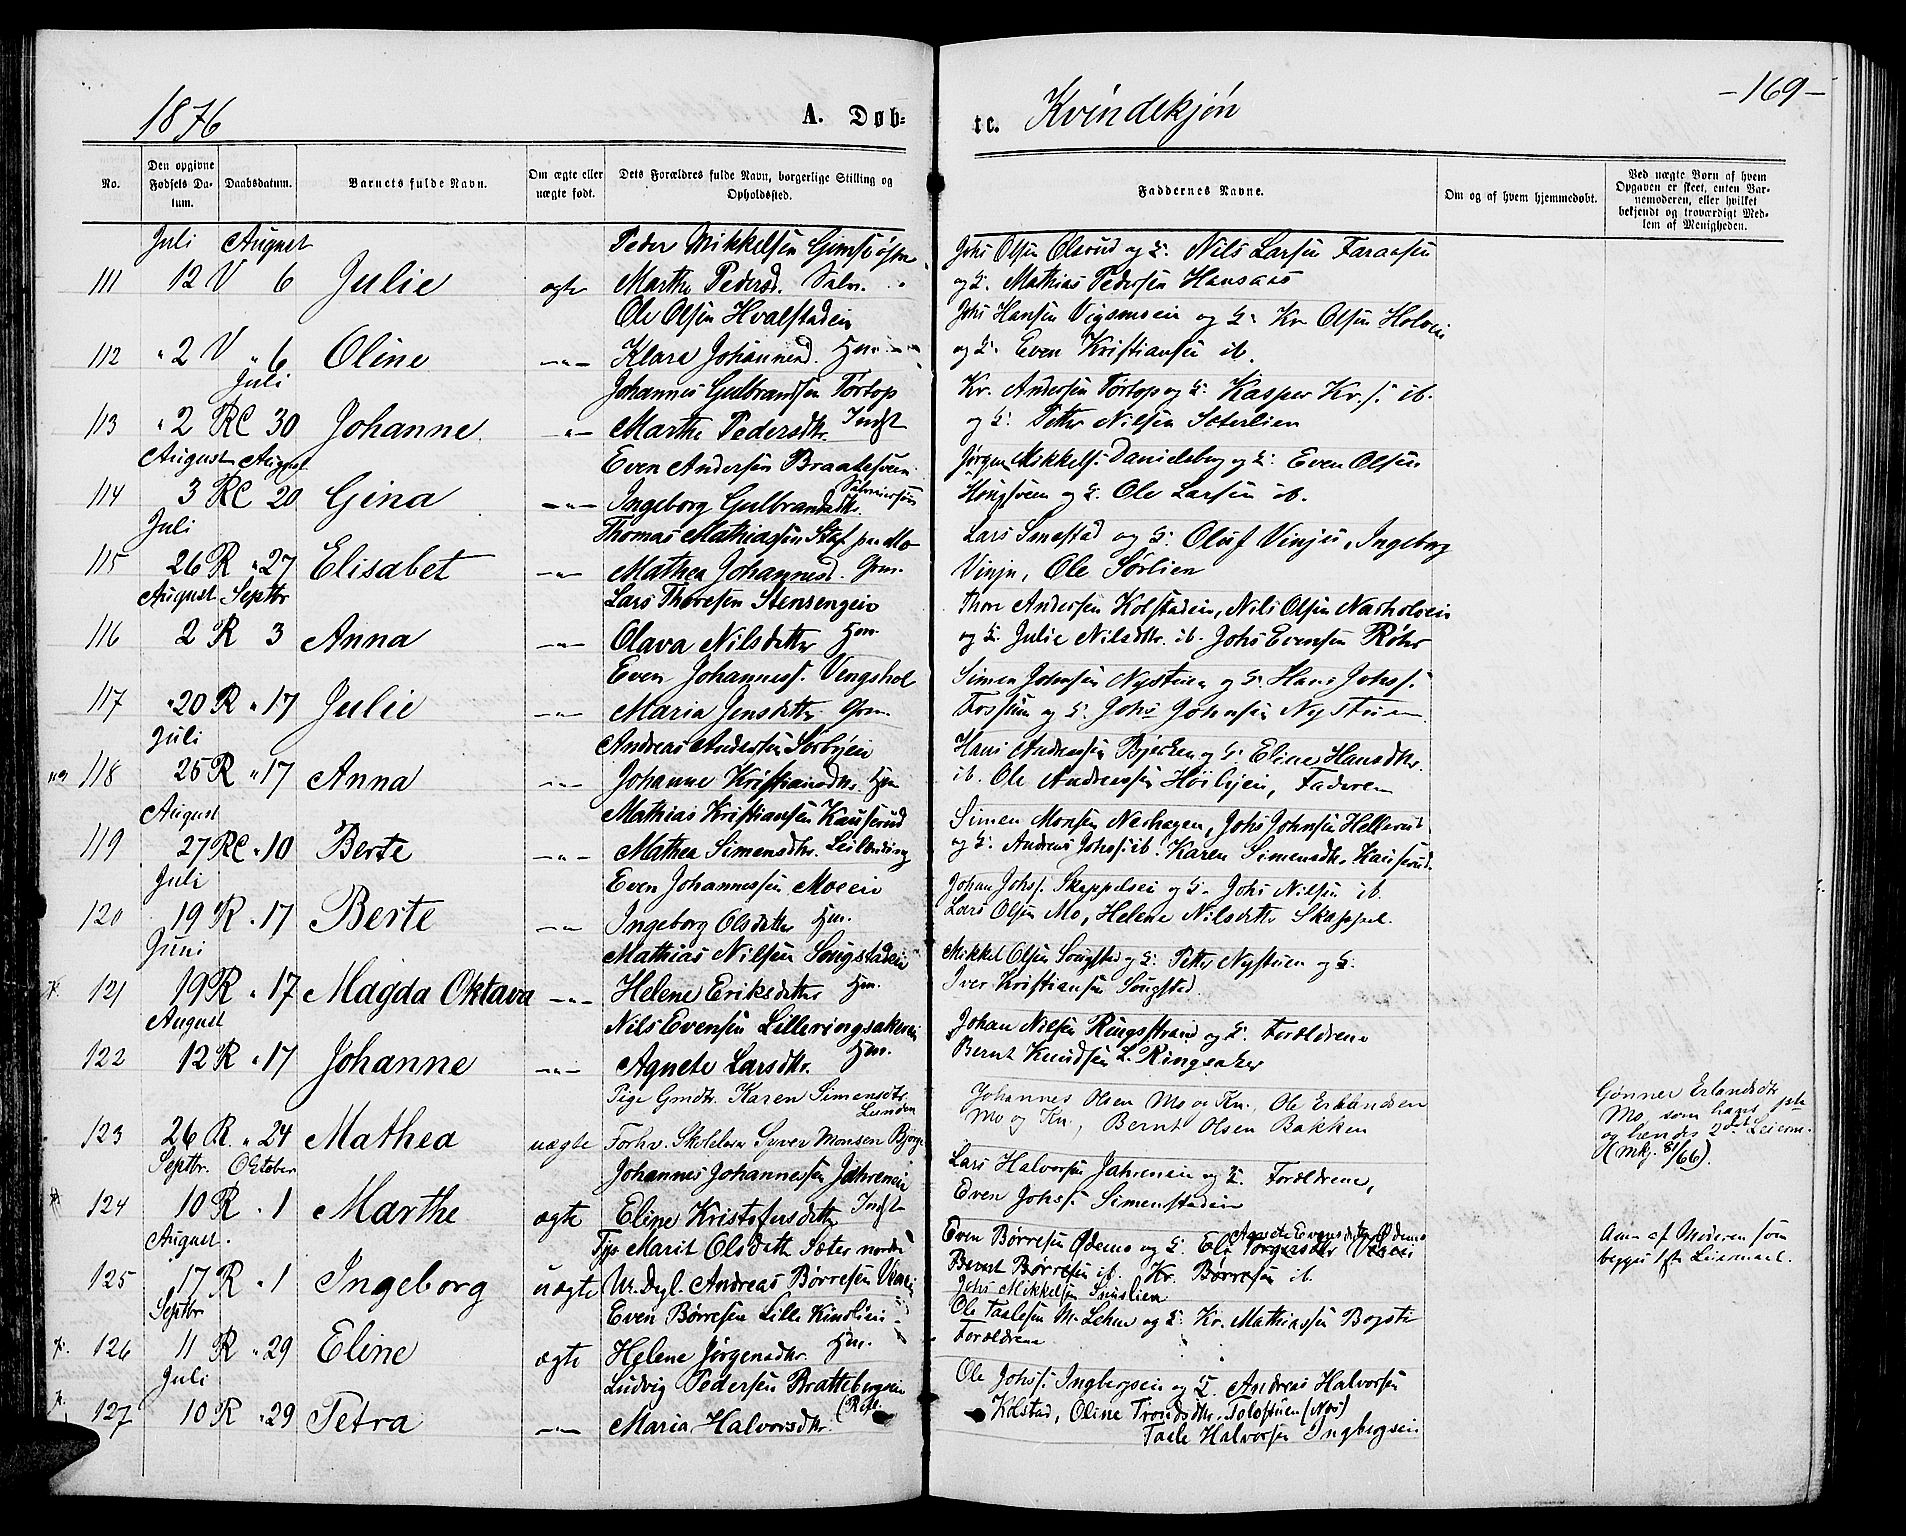 1876
A. Døb=
te. Kvindekjøn
-169-
No.
Den opgivne Fødsels Datum.
Daabsdatum.
Barnets fulde Navn.
Om ægte eller uægte født.
Dets Forældres fulde Navn, borgerlige Stilling og Opholdssted.
Faddernes Navne.
Om og af hvem hjemmedøbt.
Ved uægte Børn af hvem Opgaven er skeet, enten Barnemoderen, eller hvilket bekjendt og troværdigt Medlem af Menigheden.
Juli August Peder Mikkelsen Johs Olsen Olsrud og H. Nils Larsen Faraasen
111 12 V 6 Julie ægte Marthe Pedersd. og H. Mathias Pedersen Hansaas
Ole Olsen Hvalstadeie Johs Hansen Vigsmoeie og H. Kr. Olsen Holveie
112 " 2 V " 6 Oline —"— Klara Johannesd. Hm. og H. Even Kristiansen ib.
Juli Johannes Gulbrandsen Tørtop Kr. Andersen Tørtop og H. Kasper Kr.s. ib.
113 " 2 RC 30 Johanne —"— Marthe Pedersdtr. Indst og H. Petter Nilsen Sæterlien
August August Even Andersen Braatesveen Jørgen Mikkels. Danielsberg og H. Even Olsen
114 3 RC 20 Gina —"— Ingeborg Gulbrandsdtr. Haugsveen og H. Ole Larsen ib.
Juli Thomas Mathiassen Staf paa Mo Lars Smestad og H. Oluf Vinju, Ingeborg
115 26 R " 27 Elisabet —"— Mathea Johannesd. Grm. Vinju, Ole Sørlien
August Septbr Lars Thoresen Stensengeie Thore Andersen Kolstadeie, Nils Olsen Narholveie
116 2 R 3 Anna —"— Olava Nilsdatter Hm. og H. Julie Nilsdtr. ib. Johs Evensen Røhr
Even Johanness. Vengshol Simen Johnsen Nystuen og H. Hans Johss.
117 " 20 R " 17 Julie —"— Maria Jensdatter Grm. Fossum og H. Johs Johnsen Nystuen
Juli Andreas Andersen Sørbyeie Hans Andersen Bjerken og H. Eline Hansdtr.
118 25 R " 17 Anna —"— Johanne Kristiansdtr. Hm ib. Ole Andreassen Høibyeie, Faderen
August Mathias Kristiansen Kauserud Simen Monsen Nerhagen, Johs Johnsen Hellerud
119 27 RC " 10 Berte —"— Mathea Simensdtr. Leilænding og H. Andreas Johss. ib. Karen Simensdtr. Kauserud.
Juli Even Johannessen Moeeie Johan Johss. Skappeleie og H. Johs Nilsen ib.
120 19 R " 17 Berte —"— Ingeborg Olsdatter Hm. Lars Olsen Mo, Helene Nilsdatter Skappel.
Juni Mathias Nilsen Sougstadeie Mikkel Olsen Sougstad og H. Petter Nystuen og H.
121 19 R " 17 Magda Oktava —"— Helene Eriksdatter Hm. Iver Kristiansen Sougstad.
August Nils Evensen Lilleringsakereie Johan Nilsen Ringsstrand og H. Forældrene
122 12 R " 17 Johanne —"— Agnete Larsdtr. Hm. Bernt Knudsen L. Ringsaker
Pige Gmdtr. Karen Simensdtr. Lunden Johannes Olsen Mo og Kn., Ole Erlandsen
123 26 R. " 24 Mathea uægte Forhv. Skolelærer Syver Monsen Bjørge Mo og Kn., Bernt Olsen Bakken
Gønner Erlandsdtr. Mo, som hans 1ste og hendes 2det Leierm. (mkj. 81/66).
Septbr. Oktober Johannes Johannessen Jahreneie Lars Halvorsen Jahreneie og H. Forældrene,
124 10 R " 1 Marthe ægte Eline Kristofersdatter Indst Even Johss. Simenstadeie
August. Tjp Marit Olsdatter Sæter nordre Even Børresen Ødemo og H. Agnete Evensdatter Ødemo
125 17 R " 1 Ingeborg uægte Ur. Dgl. Andreas Børresen Bernt Børresen ib. Kr. Børresen ib. Johs Mikkelsen
Anm af Moderen som begges 1ste Leiermaal.
Septbr Even Børresen Lille Kindlieie Ole Taalesen M. Lehne og H. Kr. Mathiassen
126 11 R " 29 Eline ægte Helene Jørgensdtr. Hm. Forældrene
Juli Ludvig Pedersen Brattebergeie Ole Johss. Ingbergeie og H. Andreas Halvorsen
127 10 R " 29 Petra —"— Maria Halvorsdtr. Kolstad, Oline Trondsdtr. Tolostuen (Næs)
Taale Halvorsen Ingbergeie